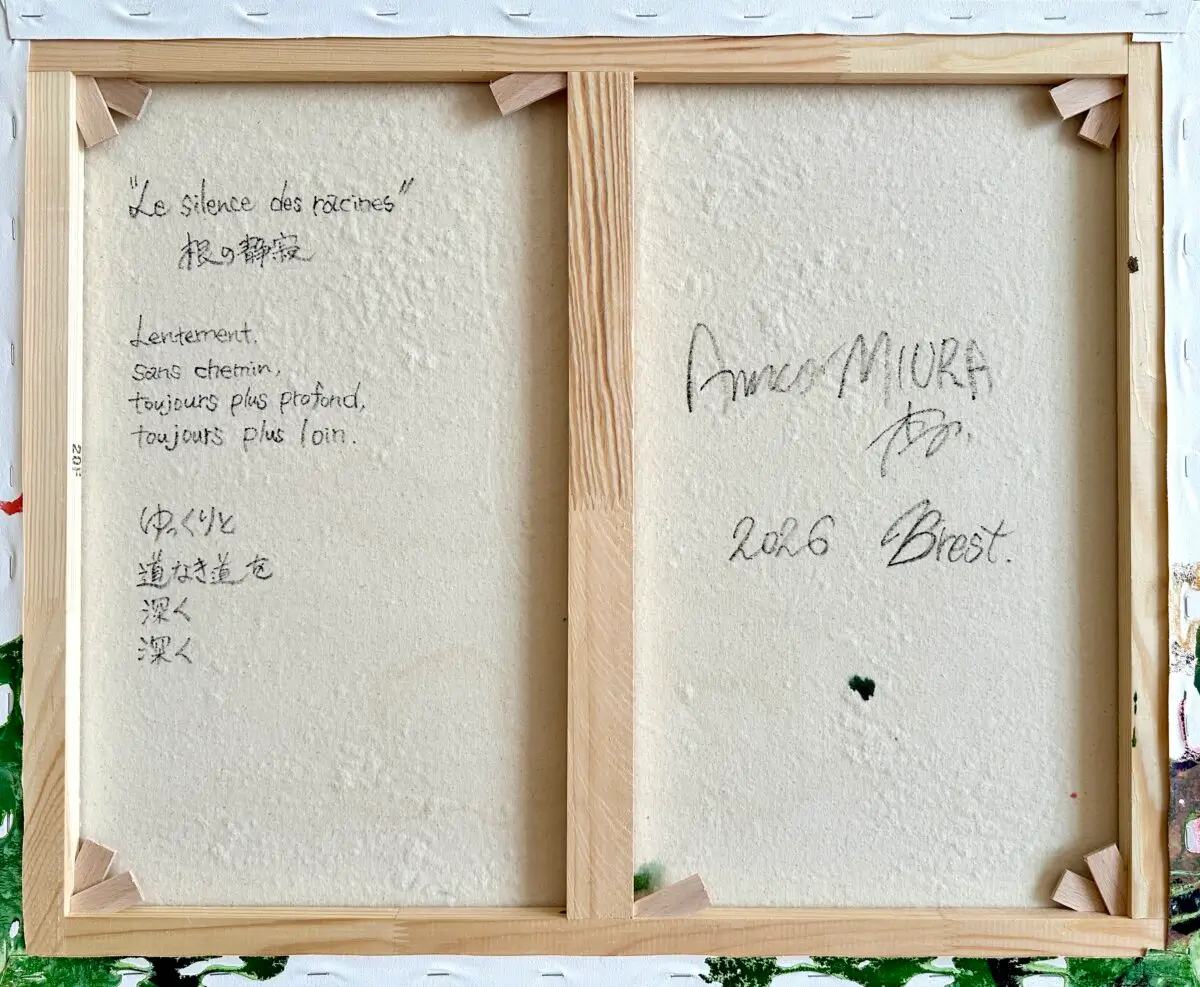 "Le silence des racines"
根の静寂
Lentement.
sans chemin,
toujours plus profond,
toujours plus loin.
ゆっくりと
道なき道を
深く
深く
20F
MIURA
2026 Brest.